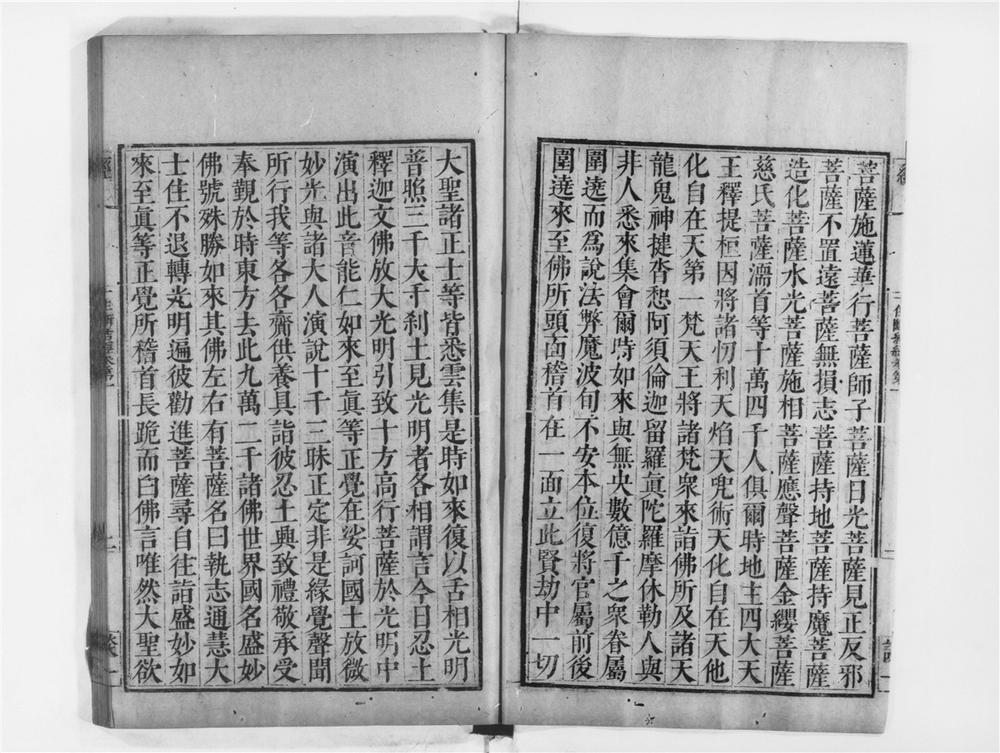 菩薩施蓮華行菩薩師子菩薩日光菩薩見正反邪
菩薩不置遠菩薩無損志菩薩持地菩薩持魔菩薩
造化菩薩水光菩薩施相菩薩應聲菩薩金纓菩薩
慈氏菩薩濡首等十萬四千人俱爾時地主四大天
王釋提桓因將諸忉利天焰天兜術天化自在天他
化自在天第一梵天王將諸梵衆來詣佛所及諸天
龍鬼神揵沓惒阿須倫迦留羅眞陀羅摩休勒人與
非人悉來集會爾時如來與無央數億千之衆眷屬
圍遶而爲說法弊魔波旬不安本位復將官屬前後
圍遶來至佛所頭面稽首在一面立此賢劫中一切
大聖諸正士等皆悉雲集是時如來復以舌相光明
普照三千大千刹土見光明者各相謂言今日忍土
釋迦文佛放大光明引致十方高行菩薩於光明中
演出此音能仁如來至眞等正覺在娑訶國土放微
妙光與諸大人演說十千三昧正定非是緣覺聲聞
所行我等各各齎供養具詣彼忍土興致禮敬承受
奉觀於時東方去此九萬二千諸佛世界國名盛妙
佛號殊勝如來其佛左右有菩薩名曰執志通慧大
士住不退轉光明遍彼勸進菩薩尋自往詣盛妙如
來至眞等正覺所稽首長跪而白佛言唯然大聖欲